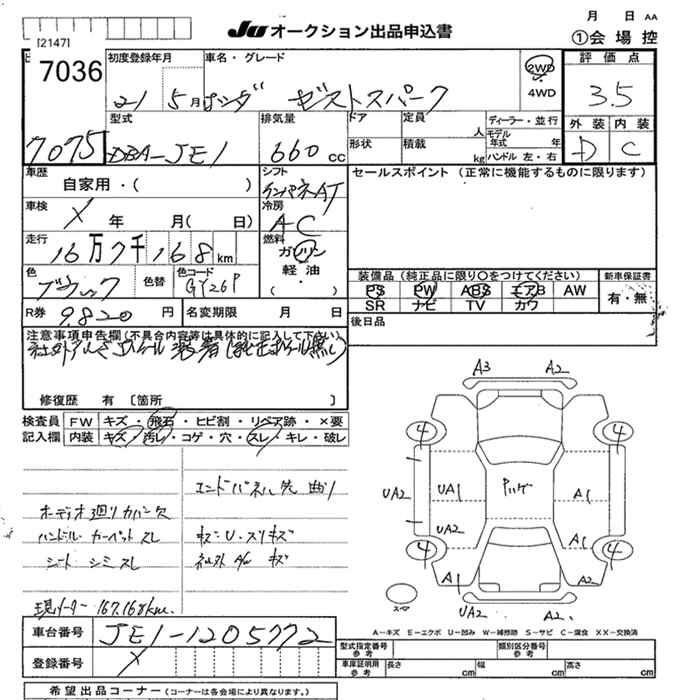 JU オークション出品申込書
月 日 AA
①会場控
[2147]
7036
初度登録年月
車名・グレード
21 5月 ホンダ ゼストスパーク
2WD
4WD
評価点
3.5
外装 内装
D C
7075
型式
DBA-JE1
排気量
660 cc
ドア
定員
人
形状
積載
kg
ディーラー・並行
モデル年式 年
ハンドル 左・右
車歴
自家用・( )
シフト
インパネAT
セールスポイント (正常に機能するものに限ります)
車検
X 年 月( 日)
冷房
AC
走行
16万7千168km
燃料
ガソリン
軽油・
( )
色
ブラック
色替
色コード
GY26P
装備品 (純正品に限り○をつけてください)
PS PW ABS エアB AW
SR ナビ TV カワ
新車保証書
有・無
R券
9,820 円
名変期限 月 日
後日品
注意事項申告欄(不具合内容等は具体的に記入して下さい)
社外アルミホイール装着(純正ホイール無し)
修復歴 有〔箇所 〕
検査員
記入欄
FW キズ・飛石・ヒビ割・リペア跡・×要
内装 キズ・汚レ・コゲ・穴・スレ・キレ・破レ
エンドパネル先曲り
オーディオ廻りカバー欠
ハンドル カーペット スレ
キズ・U・スリキズ
シート シミ スレ
社外AW キズ
現メーター 167,168km
A3 A2
4 4
UA2 UA1 Pルーフ A1
UA2 A1
4 4
A1 A2
スペア
UA2 A2
A-キズ E-エクボ U-凹み W-補修跡 S-サビ C-腐食 XX-交換済
車台番号
JE1-1205772
登録番号
X
型式指定番号
参考
類別区分番号
参考
車庫証明用
参考
長さ cm
幅 cm
高さ cm
希望出品コーナー (コーナーは各会場により異なります。)